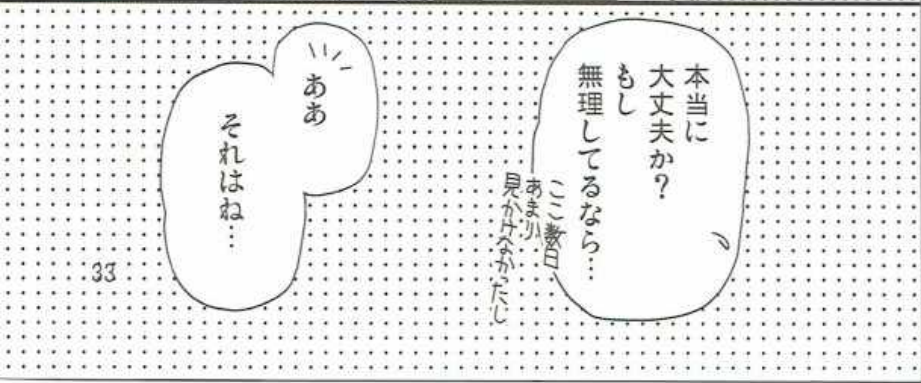 本当に
大丈夫か？
もし
無理してるなら…
ここ数日、
あまり
見かけなかったし
ああ
それはね…
33